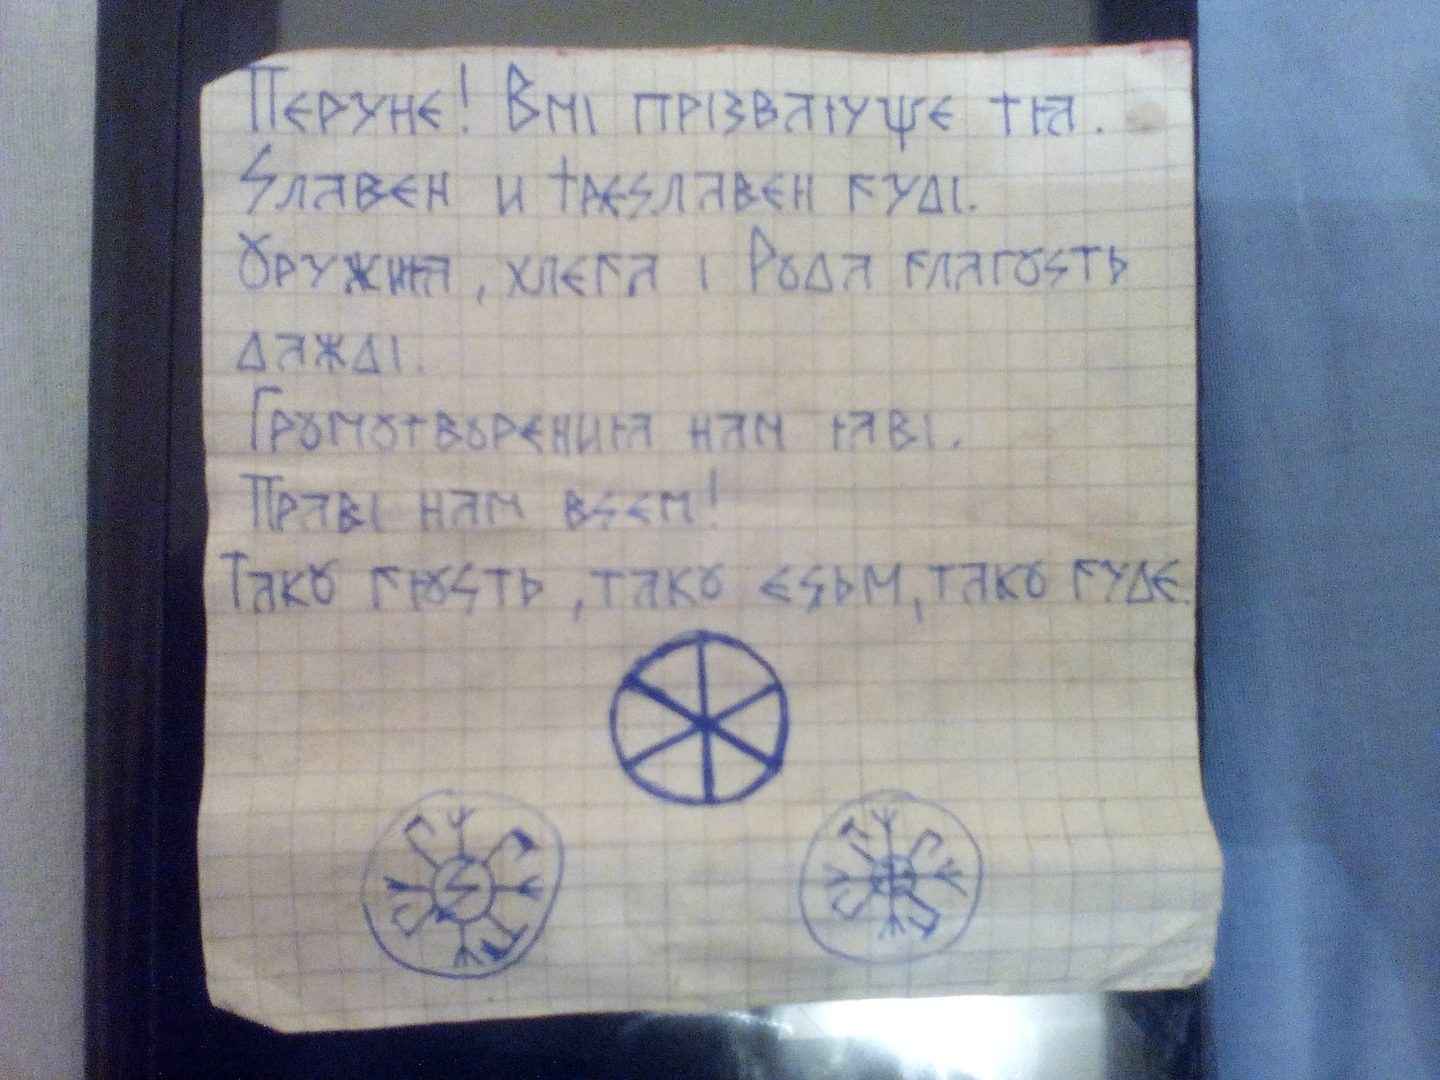 Перуне! Вмі прізваіуще тıа.
Ѕлавен и треѕлавен буді.
Оружиıа, хлеба і Рода благоѕть
дажді.
Громотворениıа нам ıаві.
Праві нам вѕем!
Тако бıоѕть, тако еѕьм, тако буде.